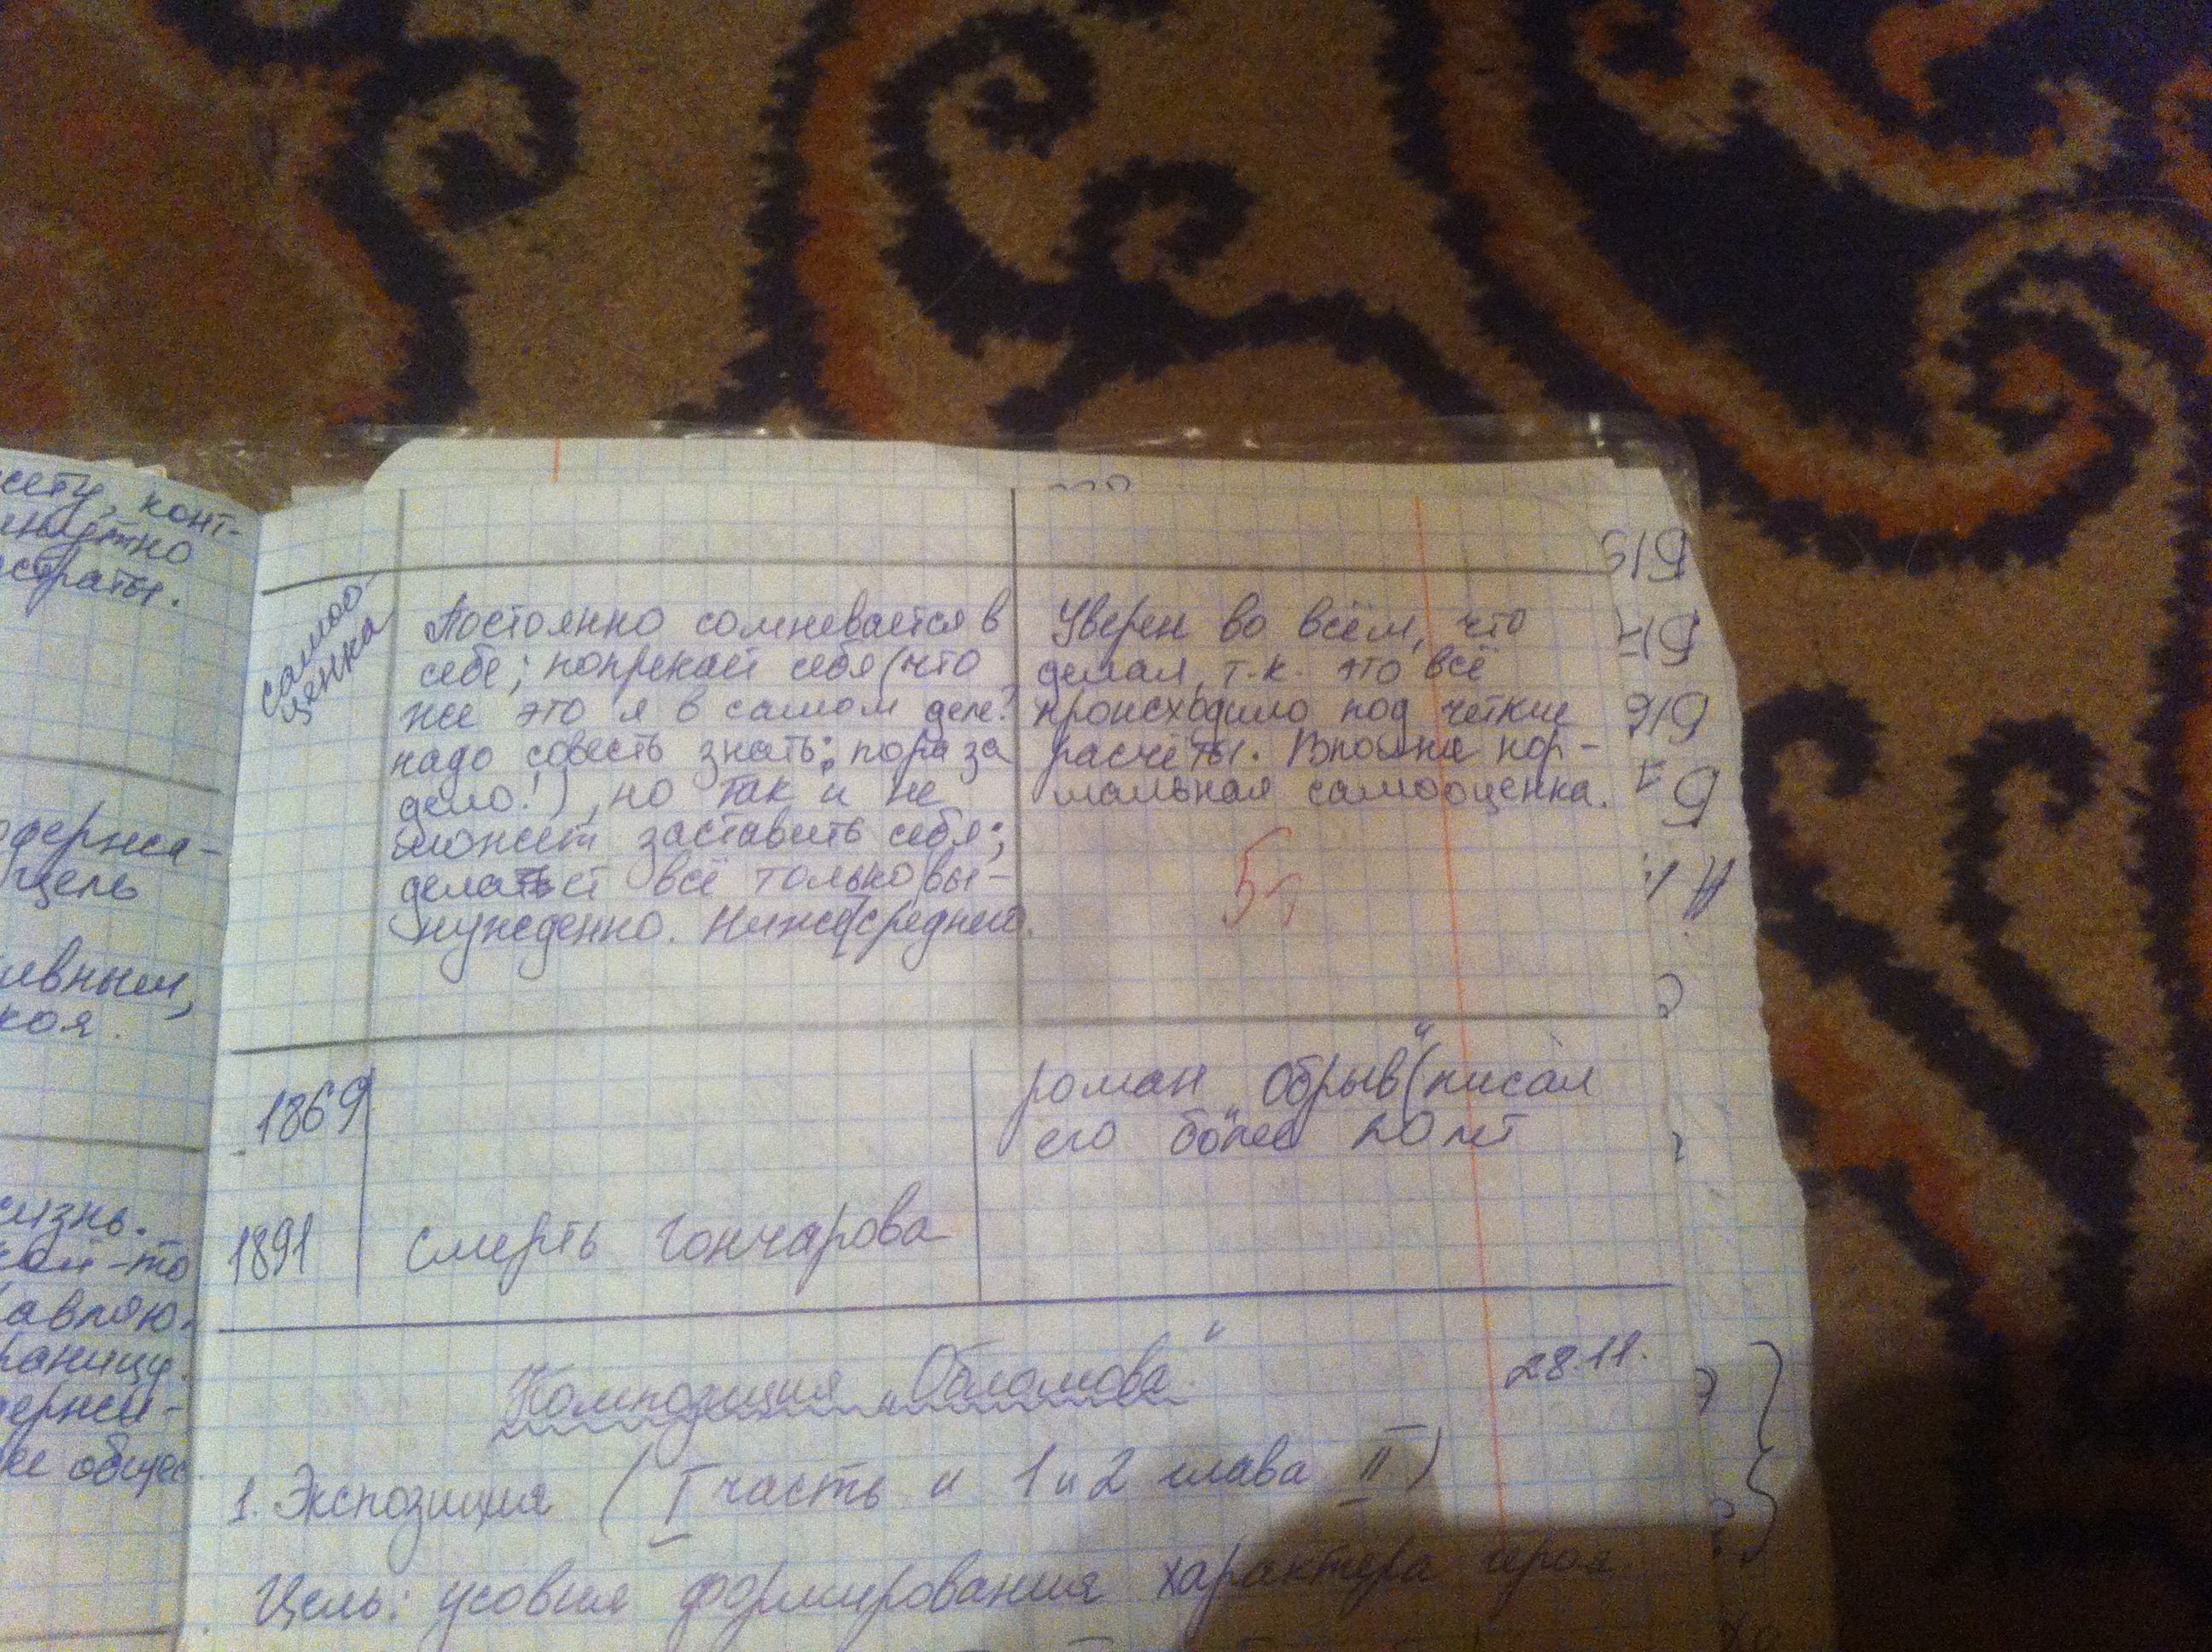 сету, конт-
страты.
держа-
цель
ивным,
кая.
жизнь.
кой-то
авляю.
раницу.
держи-
ее общес
самоо-
ценка
Постоянно сомневается в
себе; попрекай себя (что
же это я в самом деле?
надо совесть знать: пора за
дело!), но так и не
может заставить себя;
делает всё только вы-
нужденно. Ниже средней.
Уверен во всём, что
делал, т.к. это всё
происходило под чёткие
расчёты. Вполне нор-
мальная самооценка.
5
1869
роман „Обрыв" (писал
его более 20 лет
1891
Смерть Гончарова
Композиция „Обломова"
28.11.
1. Экспозиция (I часть и 1 и 2 глава II)
Цель: усовия формирования характера героя